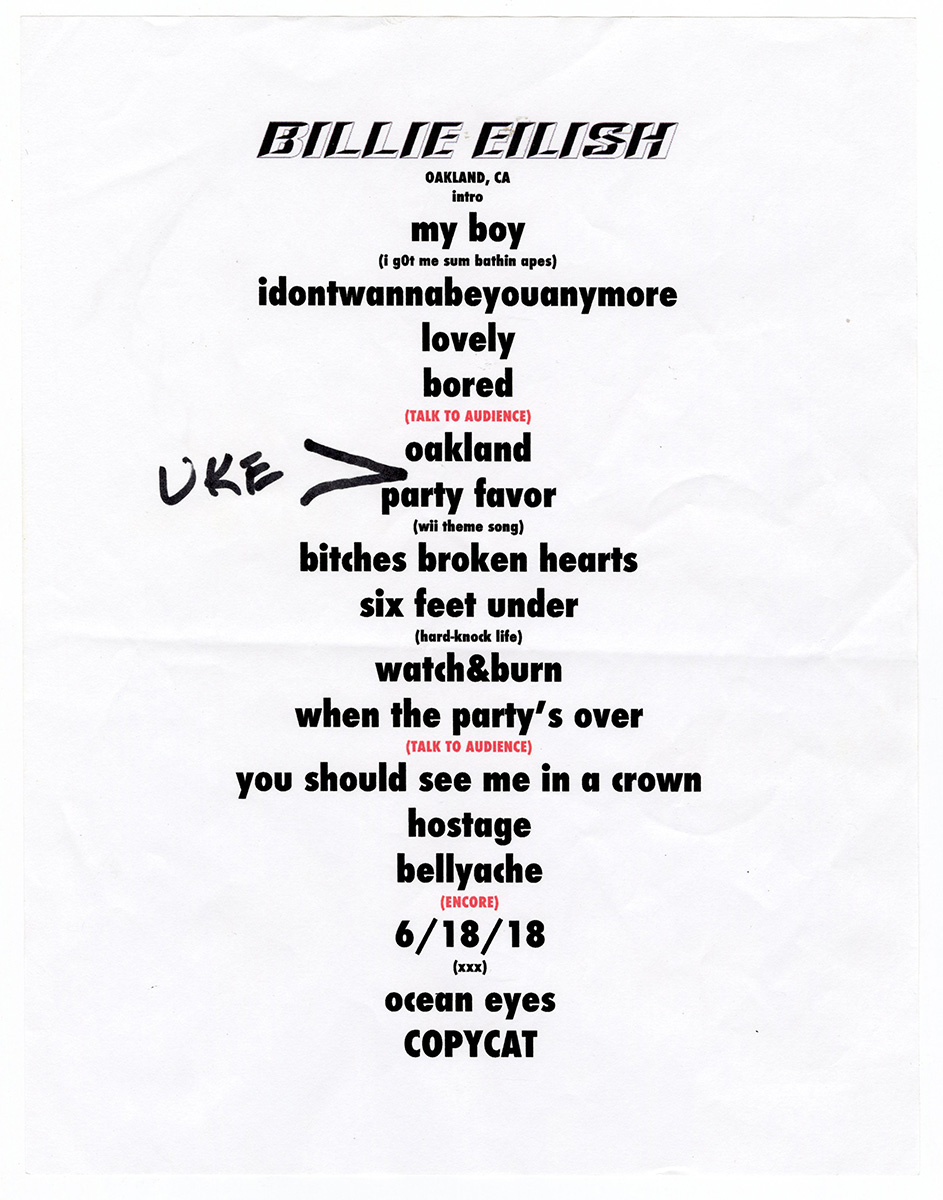 BILLIE EILISH
OAKLAND, CA
intro
my boy
(i g0t me sum bathin apes)
idontwannabeyouanymore
lovely
bored
(TALK TO AUDIENCE)
oakland
UKE >
party favor
(wii theme song)
bitches broken hearts
six feet under
(hard-knock life)
watch&burn
when the party's over
(TALK TO AUDIENCE)
you should see me in a crown
hostage
bellyache
(ENCORE)
6/18/18
(xxx)
ocean eyes
COPYCAT